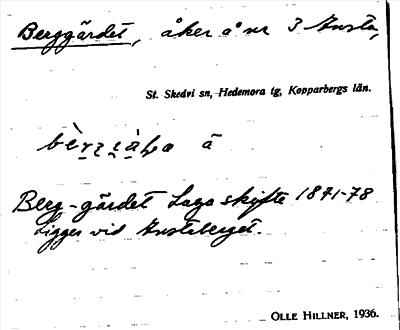 Berggärdet, åker å nr 3 Knsta,
St. Skedvi sn, Hedemora tg, Kopparbergs län.
ä
Berg-gärdet Laga skifte 1871-78
Ligger vid
OLLE HILLNER, 1936.